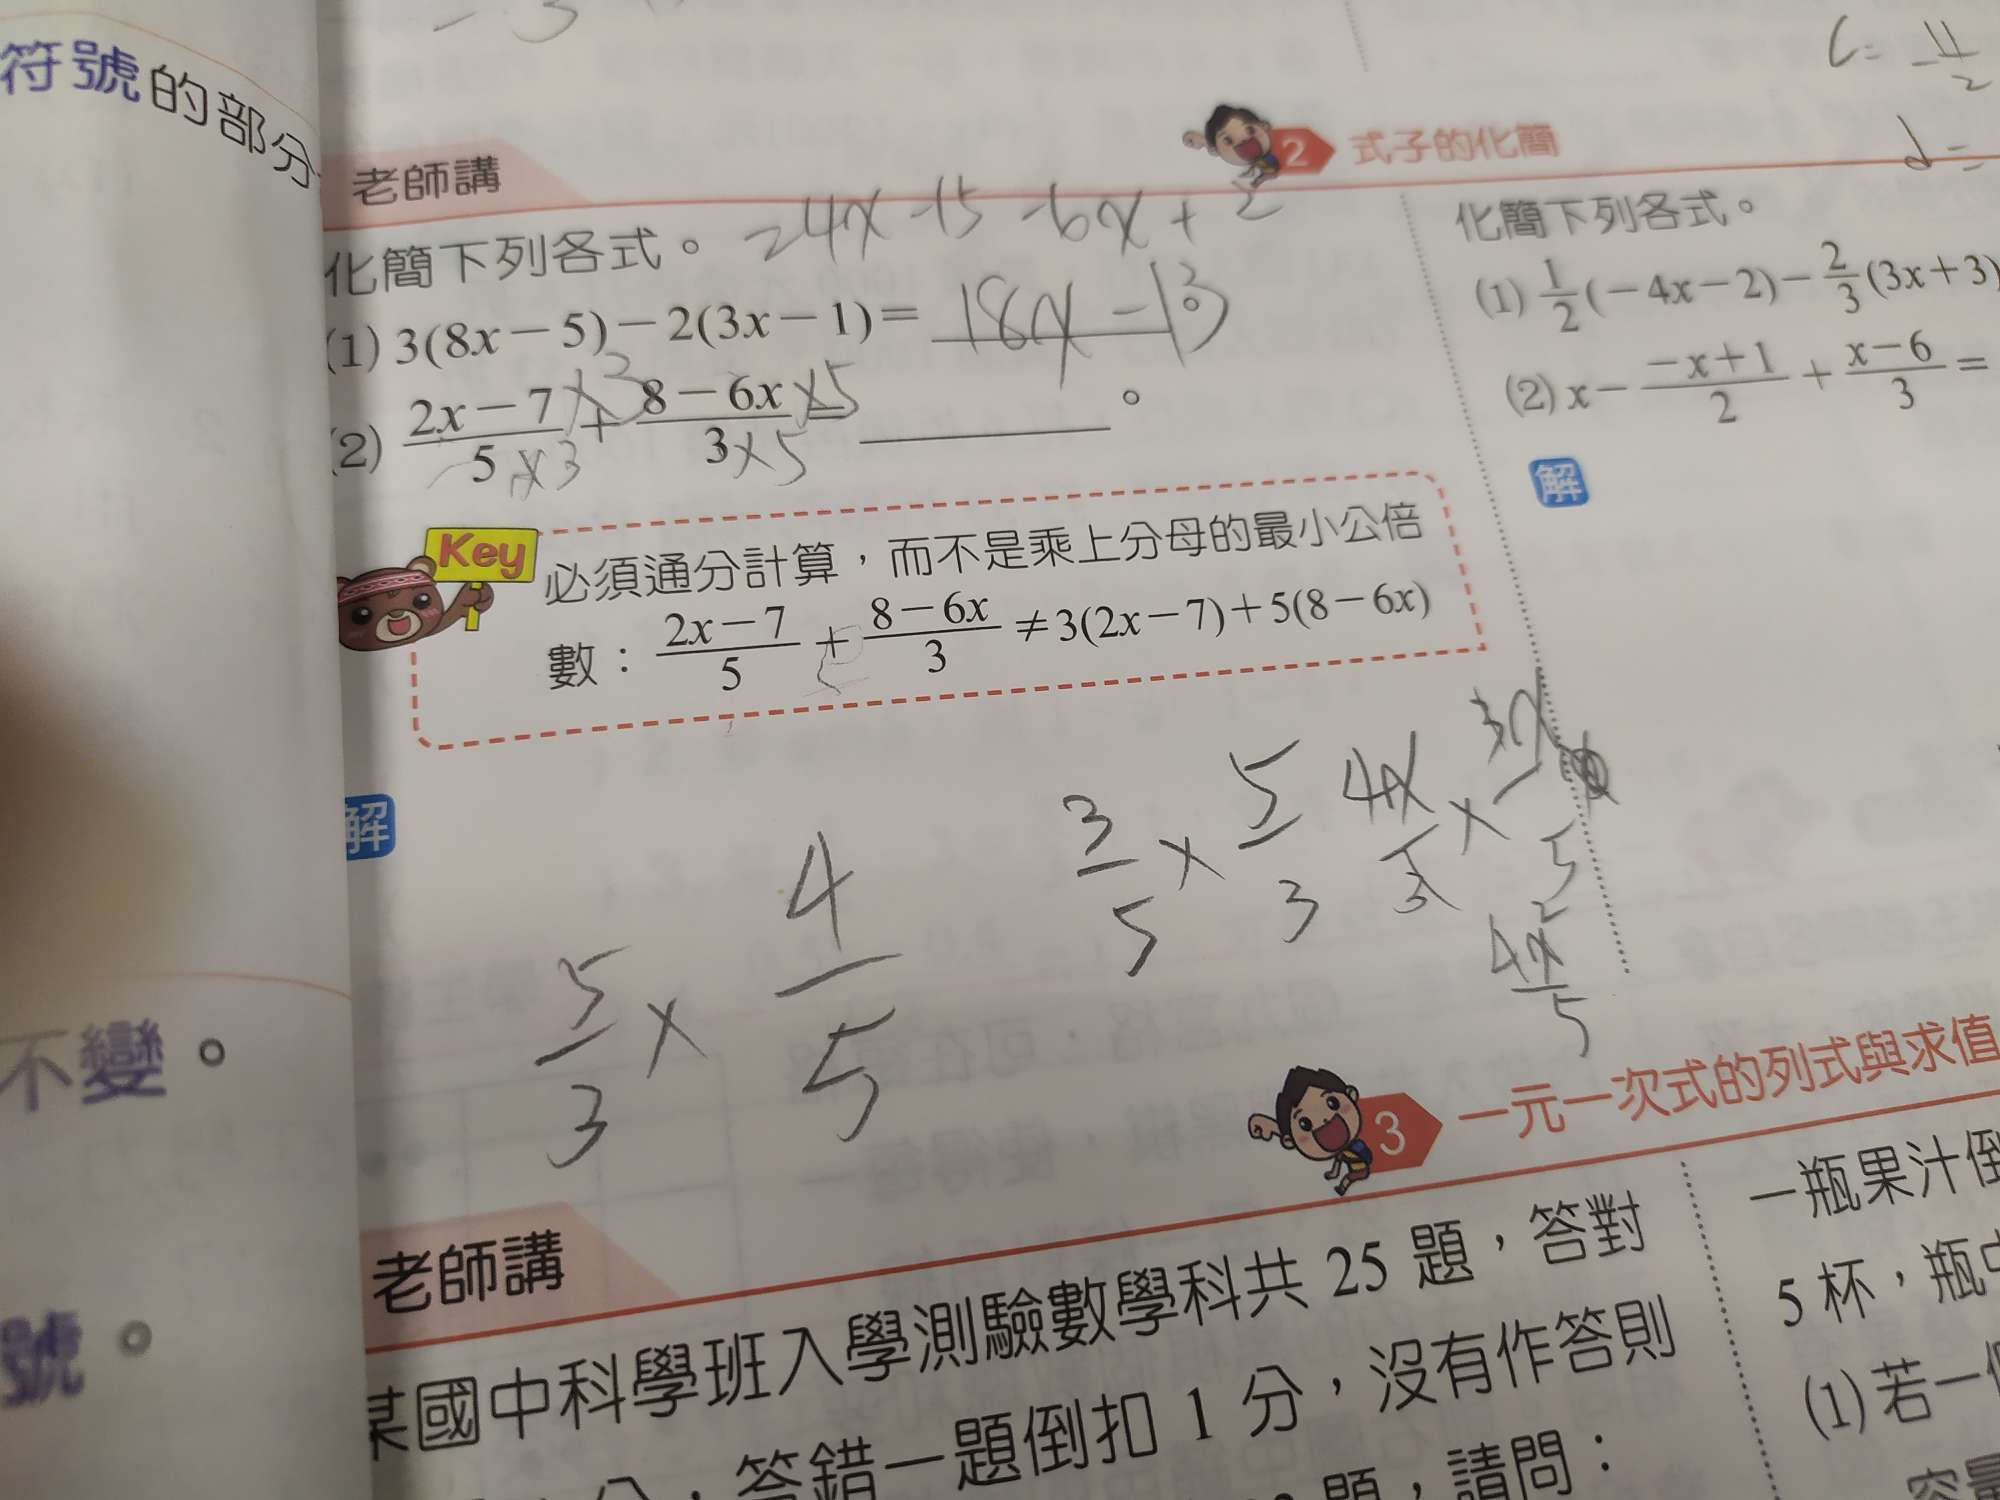 符號的部分
不變。
號。
C = -11/2
d =
老師講
2 式子的化簡
化簡下列各式。
= 24x -15 -6x + 2
(1) 3(8x－5)－2(3x－1)= 18x - 13
(2) (2x－7)/5 + (8－6x)/3 = ________。
×3 ×5
×3 ×5
Key 必須通分計算，而不是乘上分母的最小公倍
數：(2x－7)/5 + (8－6x)/3 ≠ 3(2x－7)+5(8－6x)
解
5/3 × 4/5
3/5 × 5/3
4x/3 ×
4x²/5
化簡下列各式。
(1) 1/2(－4x－2)－2/3(3x+3)
(2) x－(－x+1)/2 + (x－6)/3 =
解
3 一元一次式的列式與求值
老師講
某國中科學班入學測驗數學科共 25 題，答對
分，答錯一題倒扣 1 分，沒有作答則
題，請問：
一瓶果汁倒
5 杯，瓶中
(1) 若一個
容量